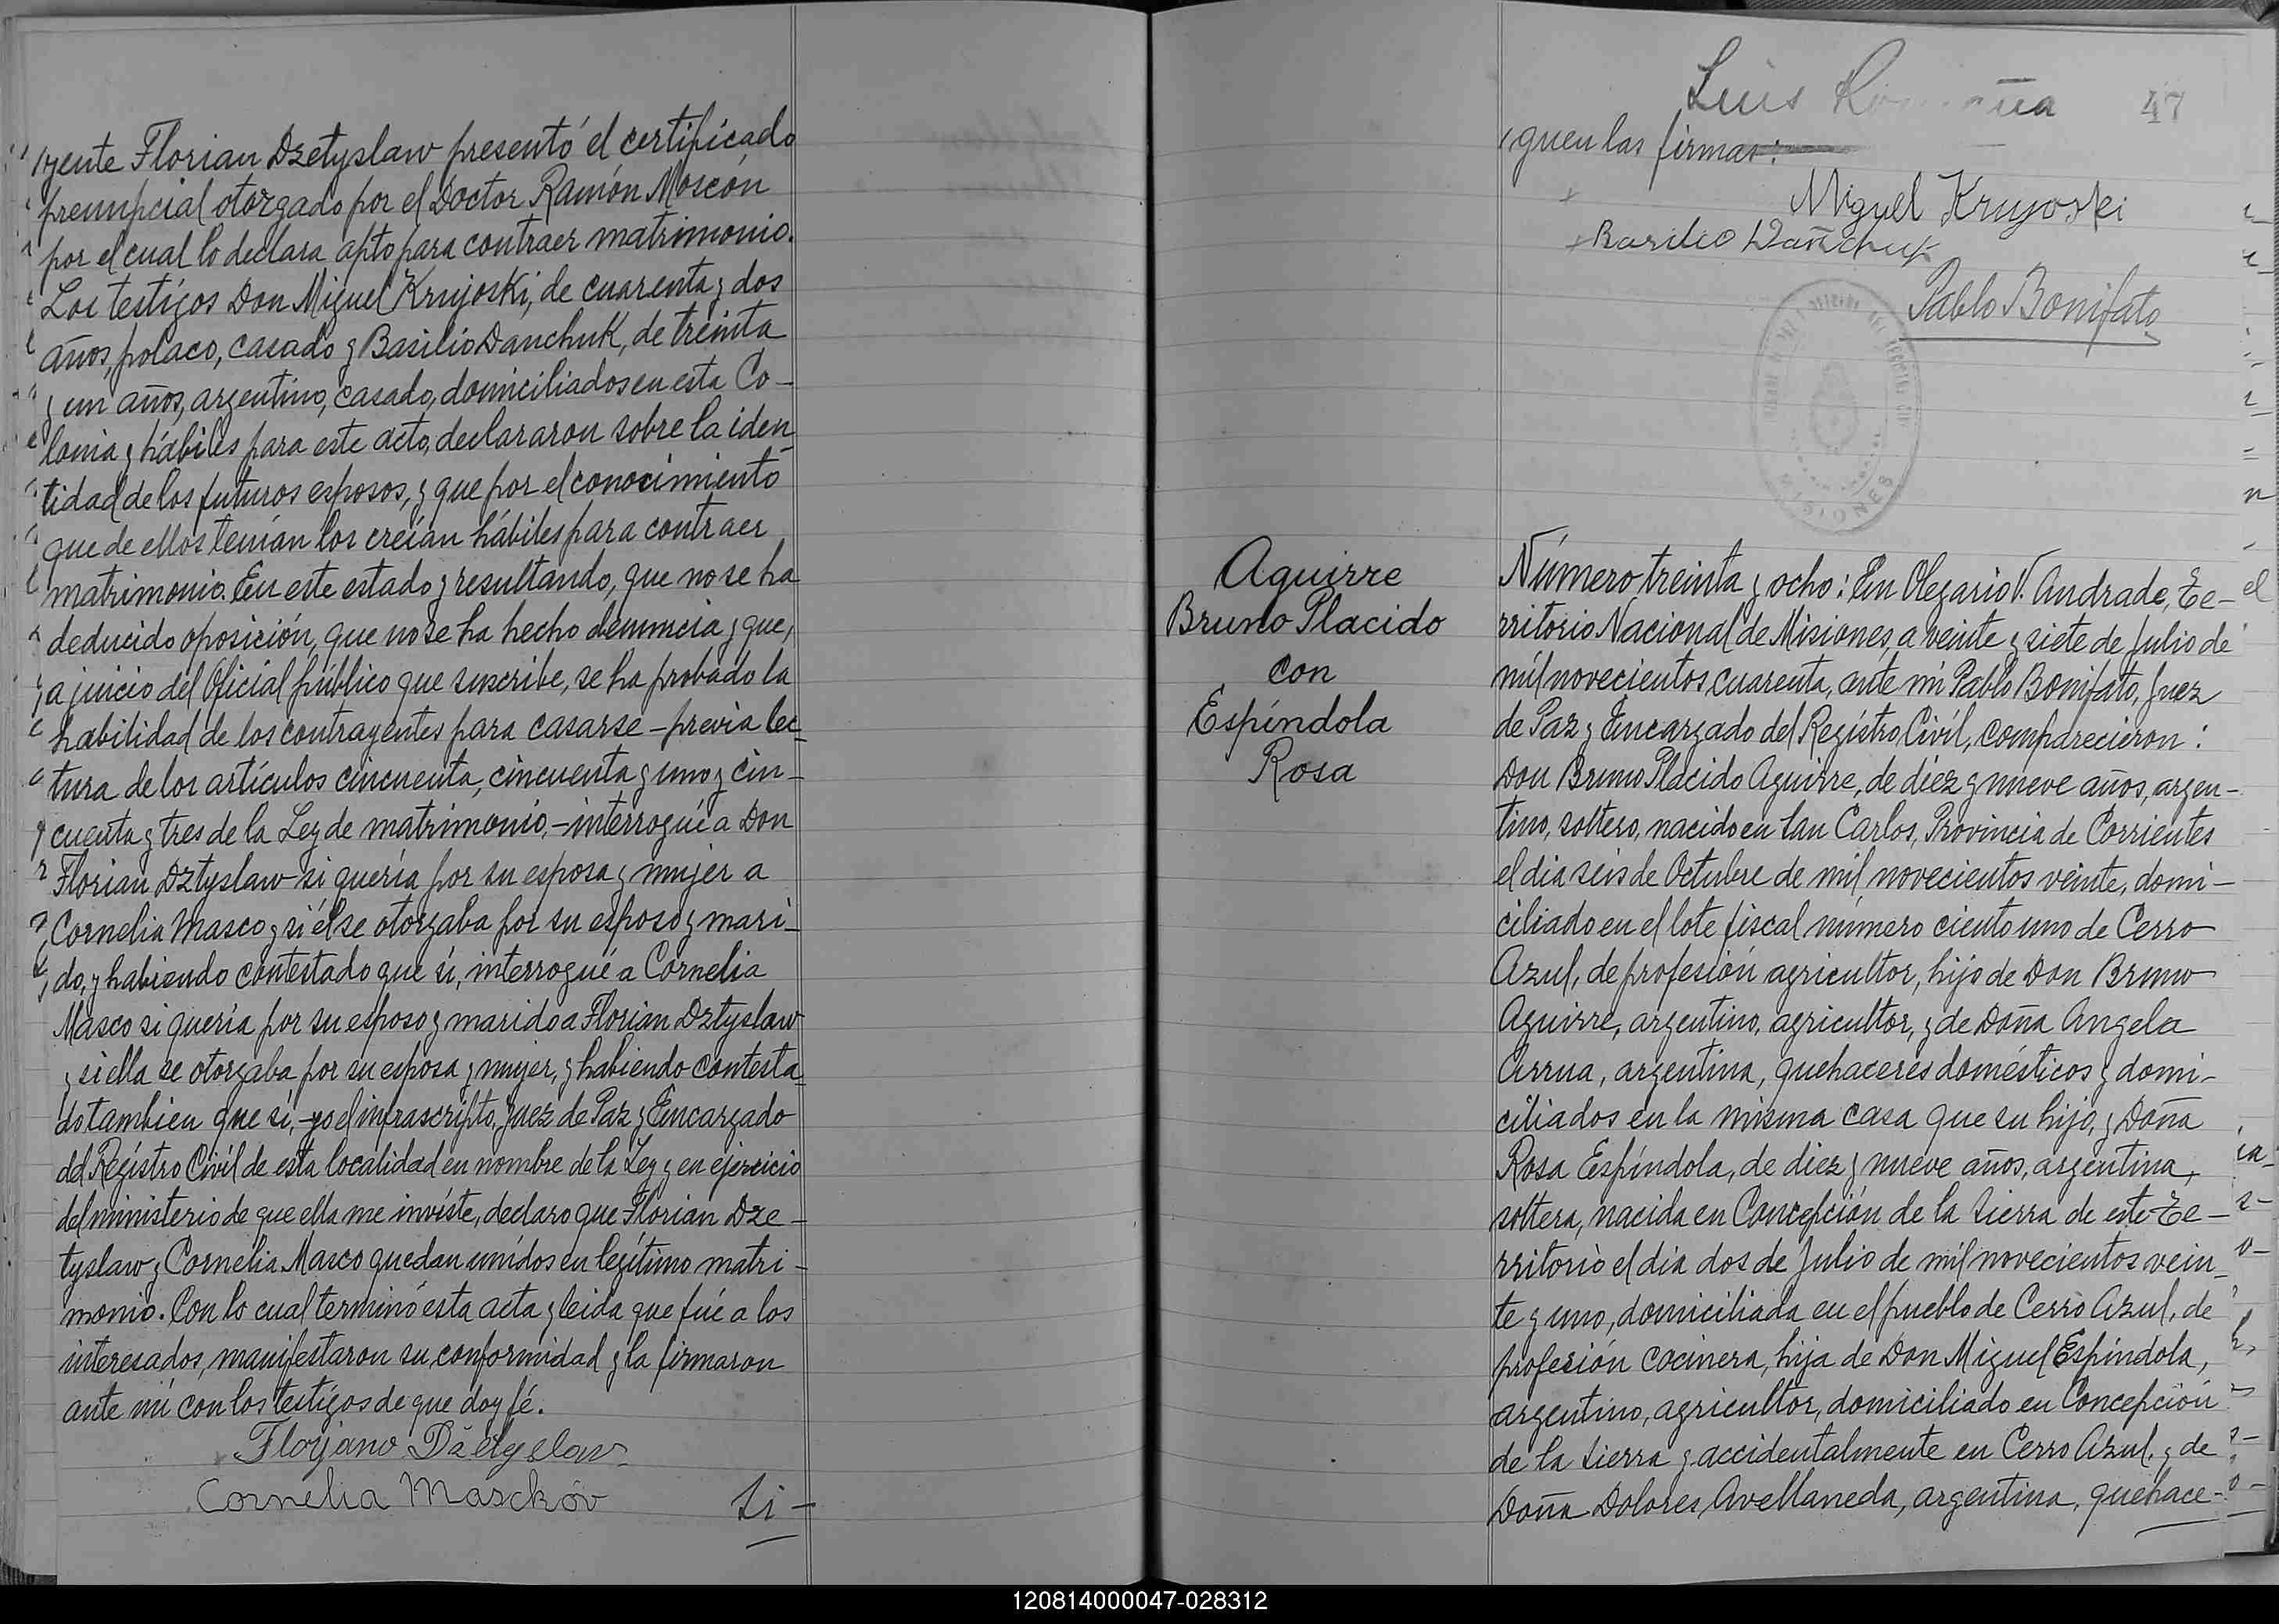 yente Florian Dzetyslaw presentó el certificado
prenupcial otorgado por el Doctor Ramón Moscón
por el cual lo declara apto para contraer matrimonio.
Los testigos Don Miguel Krujoski, de cuarenta y dos
años, polaco, casado y Basilio Danchuk, de treinta
y un años, argentino, casado, domiciliados en esta Co-
lonia y hábiles para este acto, declararon sobre la iden
tidad de los futuros esposos, y que por el conocimiento
que de ellos tenían los creían hábiles para contraer
matrimonio. En este estado y resultando, que no se ha
deducido oposición, que no se ha hecho denuncia y que,
a juicio del Oficial público que suscribe, se ha probado la
habilidad de los contrayentes para casarse - previa lec-
tura de los artículos cincuenta, cincuenta y uno y cin-
cuenta y tres de la Ley de matrimonio, - interrogué a Don
Florian Dztyslaw si quería por su esposa y mujer a
Cornelia Masco y si él se otorgaba por su esposo y mari-
do, y habiendo contestado que sí, interrogué a Cornelia
Masco si quería por su esposo y marido a Florian Dztyslaw
y si ella se otorgaba por su esposa y mujer, y habiendo contesta
do tambien que sí, - yo el infrascripto, Juez de Paz y Encargado
del Registro Civil de esta localidad en nombre de la Ley y en ejercicio
del ministerio de que ella me inviste, declaro que Florian Dze-
tyslaw y Cornelia Masco quedan unidos en legítimo matri-
monio. Con lo cual terminó esta acta y leida que fué a los
interesados, manifestaron su conformidad y la firmaron
ante mí con los testigos de que doy fé.
Cornelia Masckóv
Si-
Luis
47
guen las firmas:
Miguel Krujoski
Basilio Dañchuk
Pablo Bonifato
MISIONES
Aguirre
Bruno Placido
con
Espíndola
Rosa
Número treinta y ocho: En Olegario V. Andrade, Te-
rritorio Nacional de Misiones, a veinte y siete de Julio de
mil novecientos cuarenta, ante mí Pablo Bonifato, Juez
de Paz y Encargado del Registro Civil, comparecieron:
Don Bruno Placido Aguirre, de diez y nueve años, argen-
tino, soltero, nacido en San Carlos, Provincia de Corrientes
el dia seis de Octubre de mil novecientos veinte, domi-
ciliado en el lote fiscal número ciento uno de Cerro
Azul, de profesión agricultor, hijo de Don Bruno
Aguirre, argentino, agricultor, y de Doña Angela
Arrua, argentina, quehaceres domésticos y domi-
ciliados en la misma casa que su hijo, y Doña
Rosa Espíndola, de diez y nueve años, argentina,
soltera, nacida en Concepción de la Sierra de este Te-
rritorio el día dos de Julio de mil novecientos vein-
te y uno, domiciliada en el pueblo de Cerro Azul, de
profesión cocinera, hija de Don Miguel Espíndola,
argentino, agricultor, domiciliado en Concepción
de la Sierra y accidentalmente en Cerro Azul, y de
Doña Dolores Avellaneda, argentina, quehace-
120814000047-028312